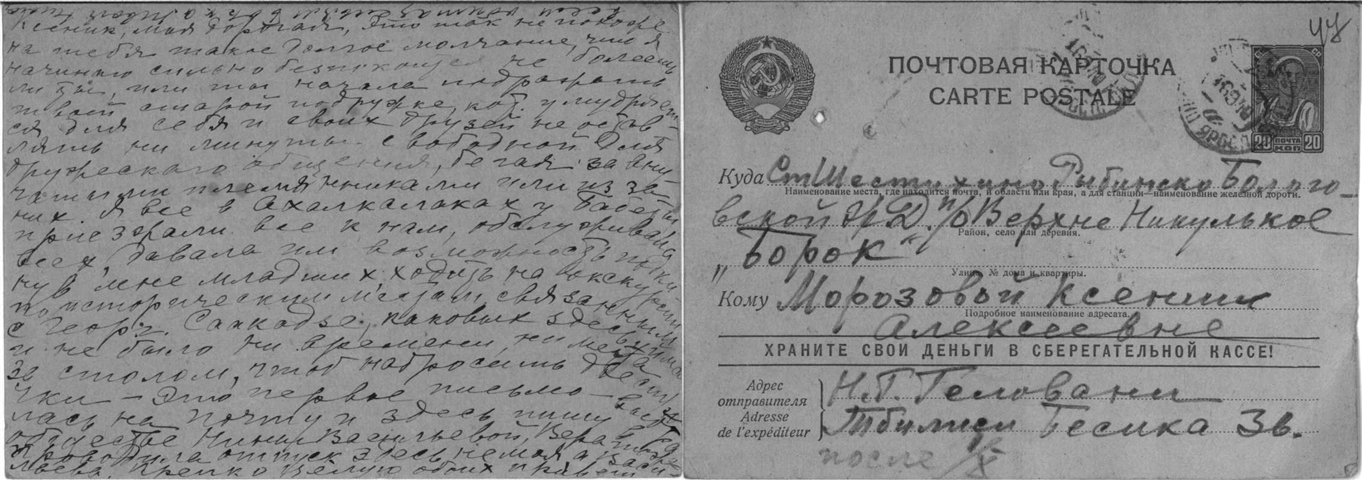 Ксеник, моя дорогая, это так не похоже
на тебя такое долгое молчание, что я
начинаю сильно безпокоиться не болеешь
ли ты, или ты начала подражать
твоей старой подружке, кот. умудряет
ся для себя и своих друзей не остав-
лять ни минуты свободной для
дружеского общения, бегая за вну
чатыми племянниками или из за
них. Я все в Ахалкалаках у
приезжали все к нам, обслуживала
всех, давала им возможность поки-
нув мне младших, ходить на экскурсии
по историческим местам, связанным
с Георг. Саакадзе, каковых здесь
и не было ни времени, ни места
за столом, чтоб набросить две
чки — Это первое письмо —
лась на почту и здесь пишу в
обществе Нины Васильевой, Вера
проводила отпуск здесь немогла
Крепко целую обоих привет
ПОЧТОВАЯ КАРТОЧКА
CARTE POSTALE
ПОЧТА
20 КОП 20
Куда Ст Шестихино Рыбинско Болого
Наименование места, где находится почта, и области или края, а для станции—наименование железной дороги.
вской ж/Д. п/о Верхне Никулькое
Район, село или деревня.
„Борок"
Улица, № дома и квартиры.
Кому Морозовой Ксении
Подробное наименование адресата.
Алексеевне
ХРАНИТЕ СВОИ ДЕНЬГИ В СБЕРЕГАТЕЛЬНОЙ КАССЕ!
Адрес отправителя Н.Г. Геловани
Adresse de l'expéditeur Тбилиси Бесика 3в.
после